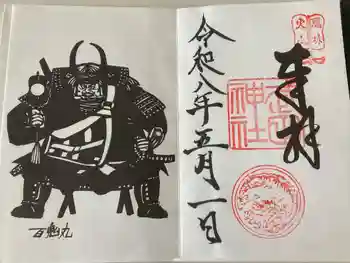 奉拝
神社
令和八年五月一日
百鬼丸